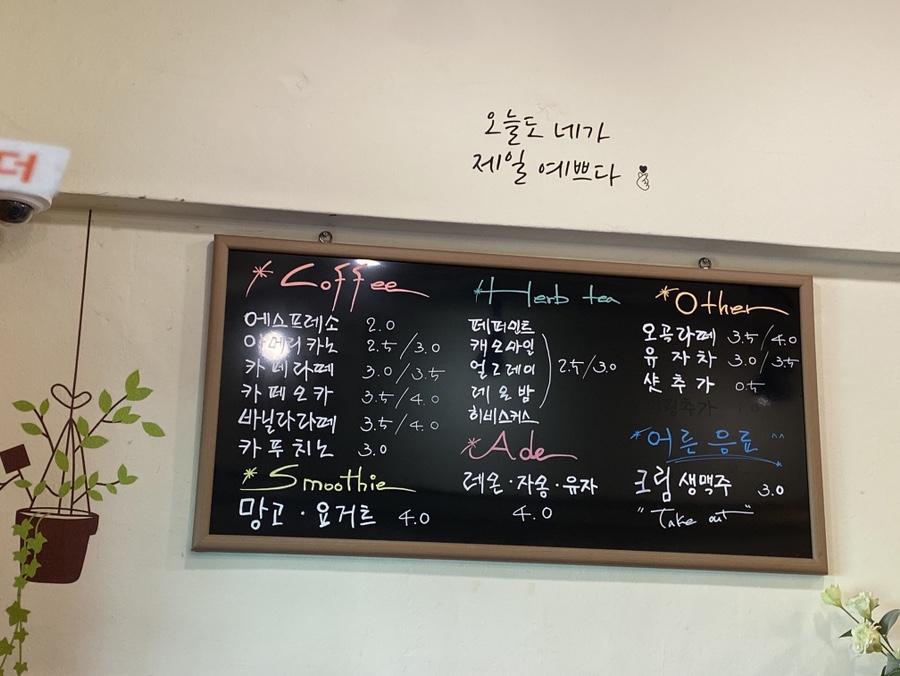 더
오늘도 네가
제일 예쁘다
*Coffee
에스프레소 2.0
아메리카노 2.5/3.0
카페라떼 3.0/3.5
카페모카 3.5/4.0
바닐라라떼 3.5/4.0
카푸치노 3.0
*Smoothie
망고·요거트 4.0
*Herb tea
페퍼민트
캐모마일
얼그레이 2.5/3.0
레몬밤
히비스커스
*Ade
레몬·자몽·유자
4.0
*Other
오곡라떼 3.5/4.0
유자차 3.0/3.5
샷추가 0.5
*어른음료 ^^
크림생맥주 3.0
"Take out"